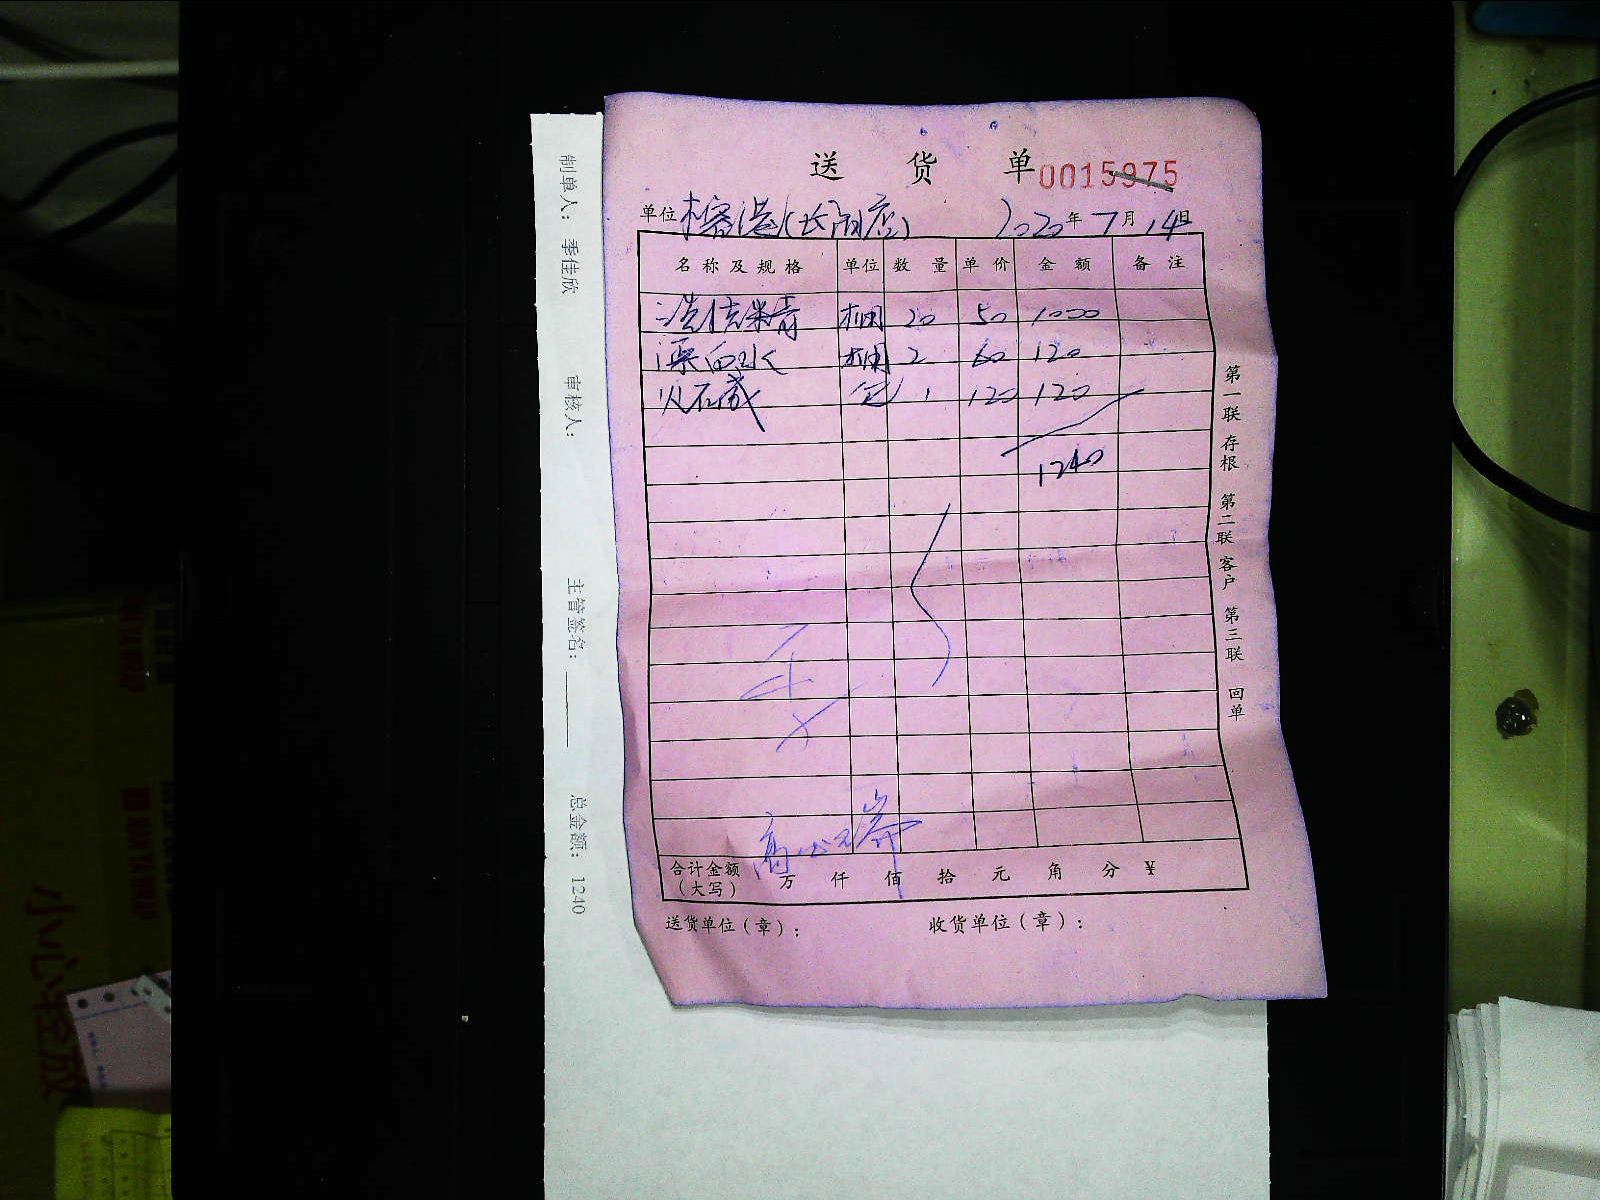 送货单 0015975
单位 榕港(长阳店) 2020年7月14日
名称及规格 单位 数量 单价 金额 备注
洗洁精 桶 20 50 1000
漂白水 桶 2 60 120
1 120 120
1240
合计金额(大写) 万 仟 佰 拾 元 角 分 ¥
送货单位(章): 收货单位(章):
第一联 存根 第二联 客户 第三联 回单
制单人: 季佳欣 审核人: 主管签名: 总金额: 1240
小心轻放